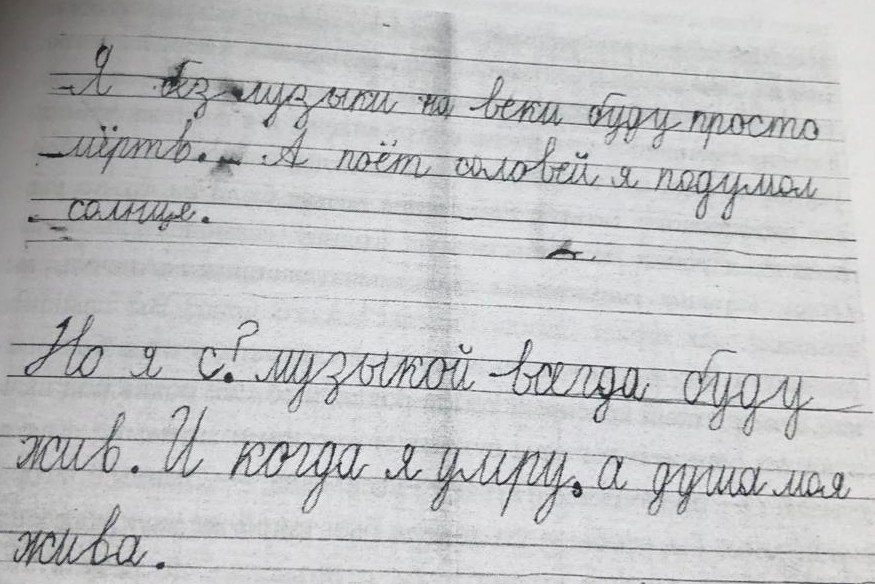 Я без музыки на веки буду просто
мёртв. А поёт соловей я подумал
солнце.
Но я с? музыкой всегда буду
жив. И когда я умру, а душа моя
жива.